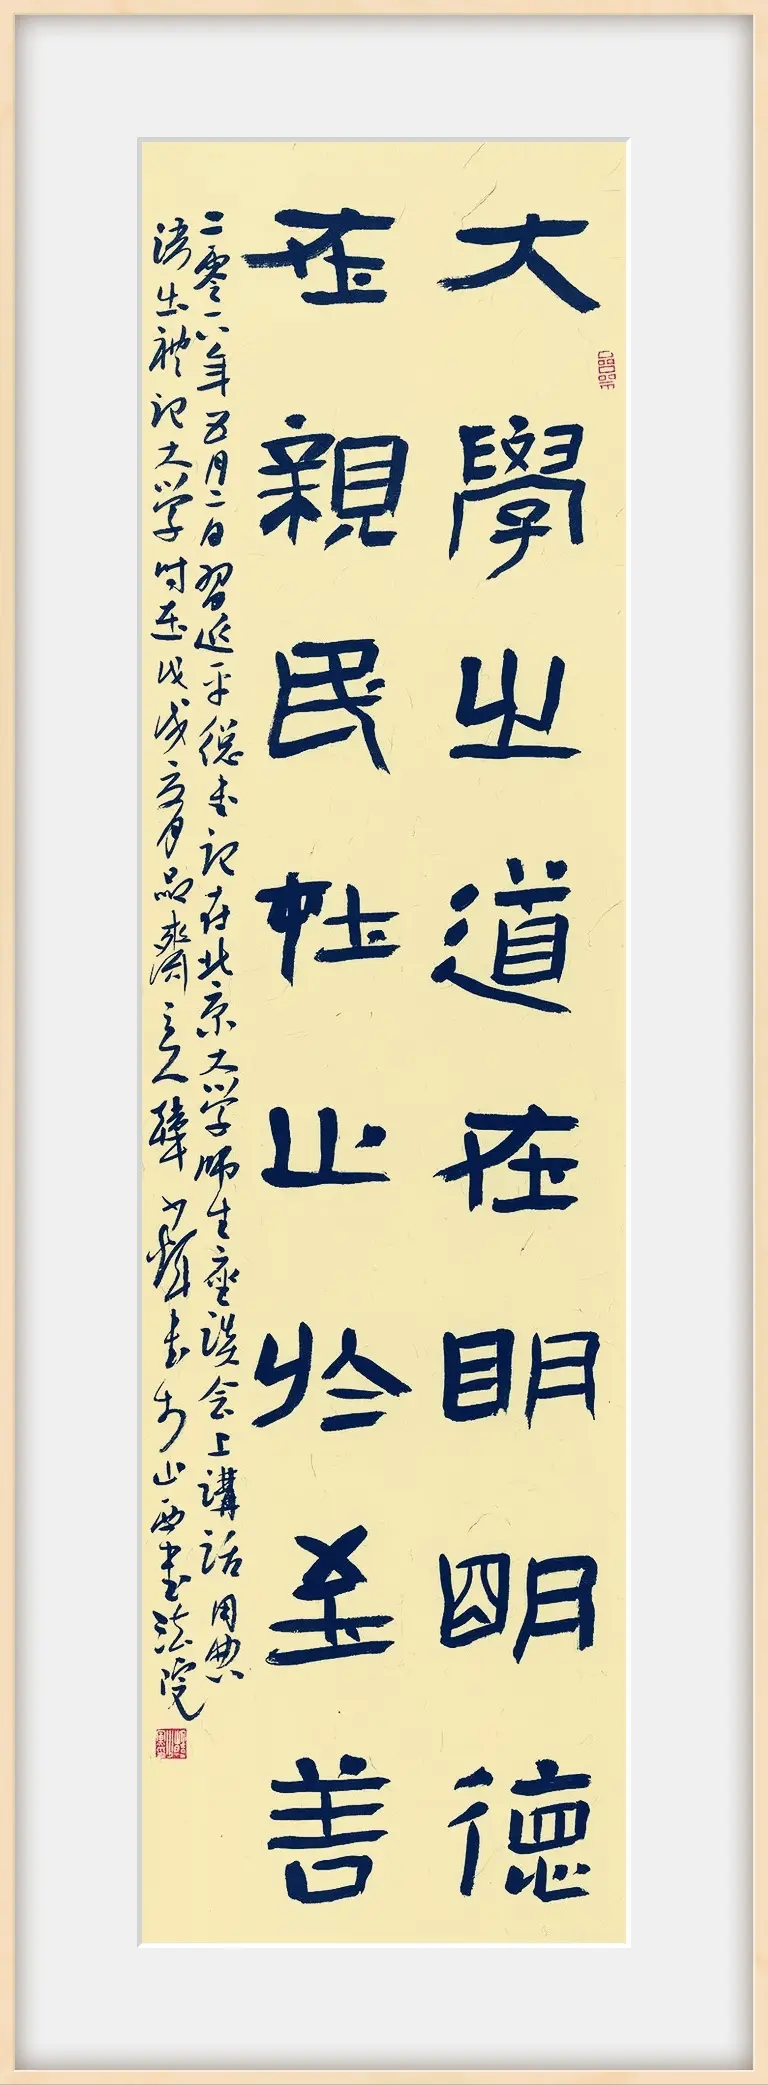 大學之道在明明德
在親民在止於至善
二零一八年五月二日習近平總书記在北京大学师生座談会上講話用典
語出禮記大学时在戊戌月品齋主人韓少书於山西书法院